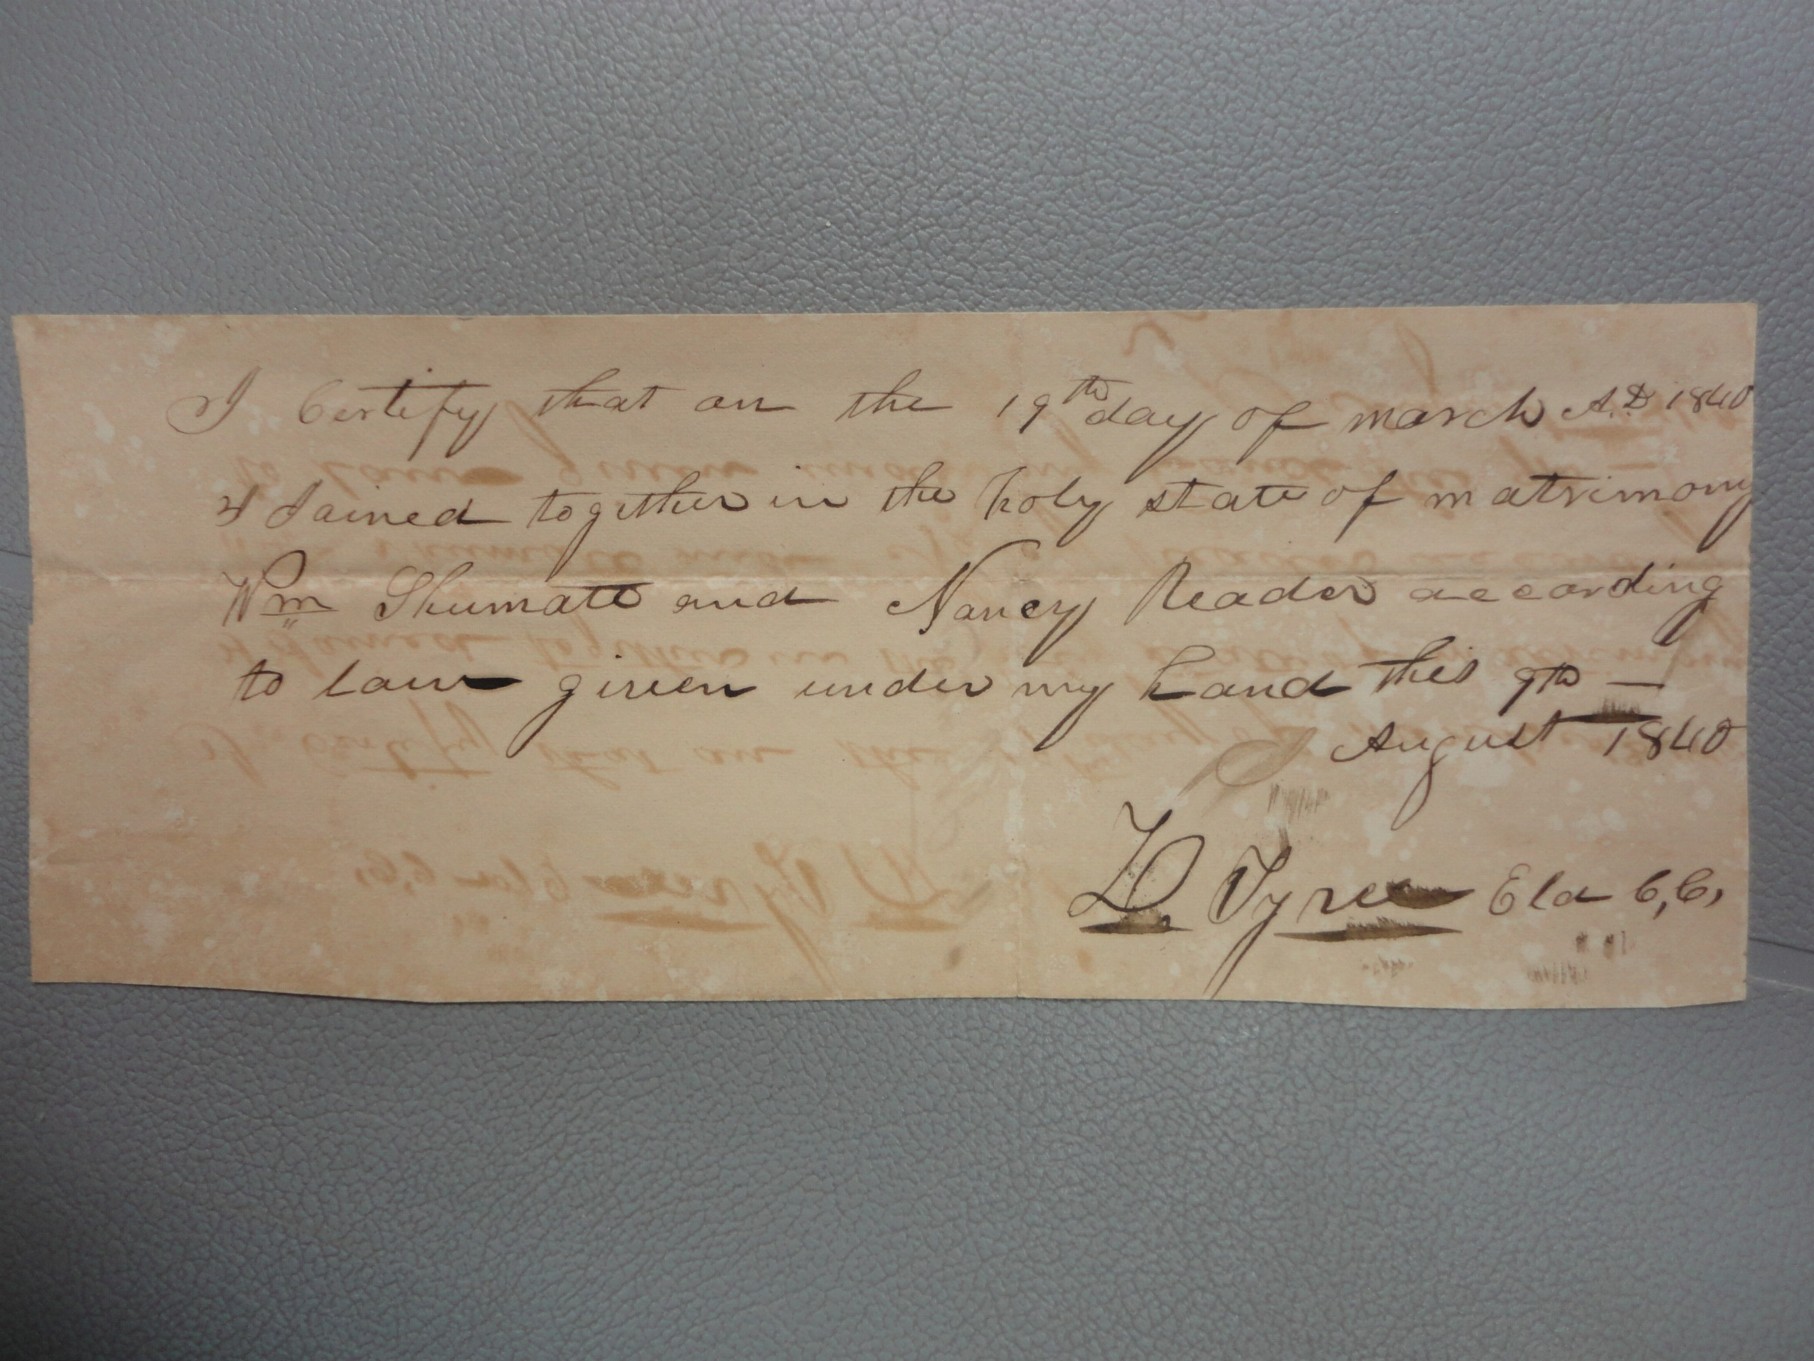 I Certify that on the 19th day of march A.D 1840
I Joined together in the holy state of matrimony
Wm Shumate and Nancy Reader according
to law given under my hand this 9th —
August 1840
D. Tyree Eld C, C,